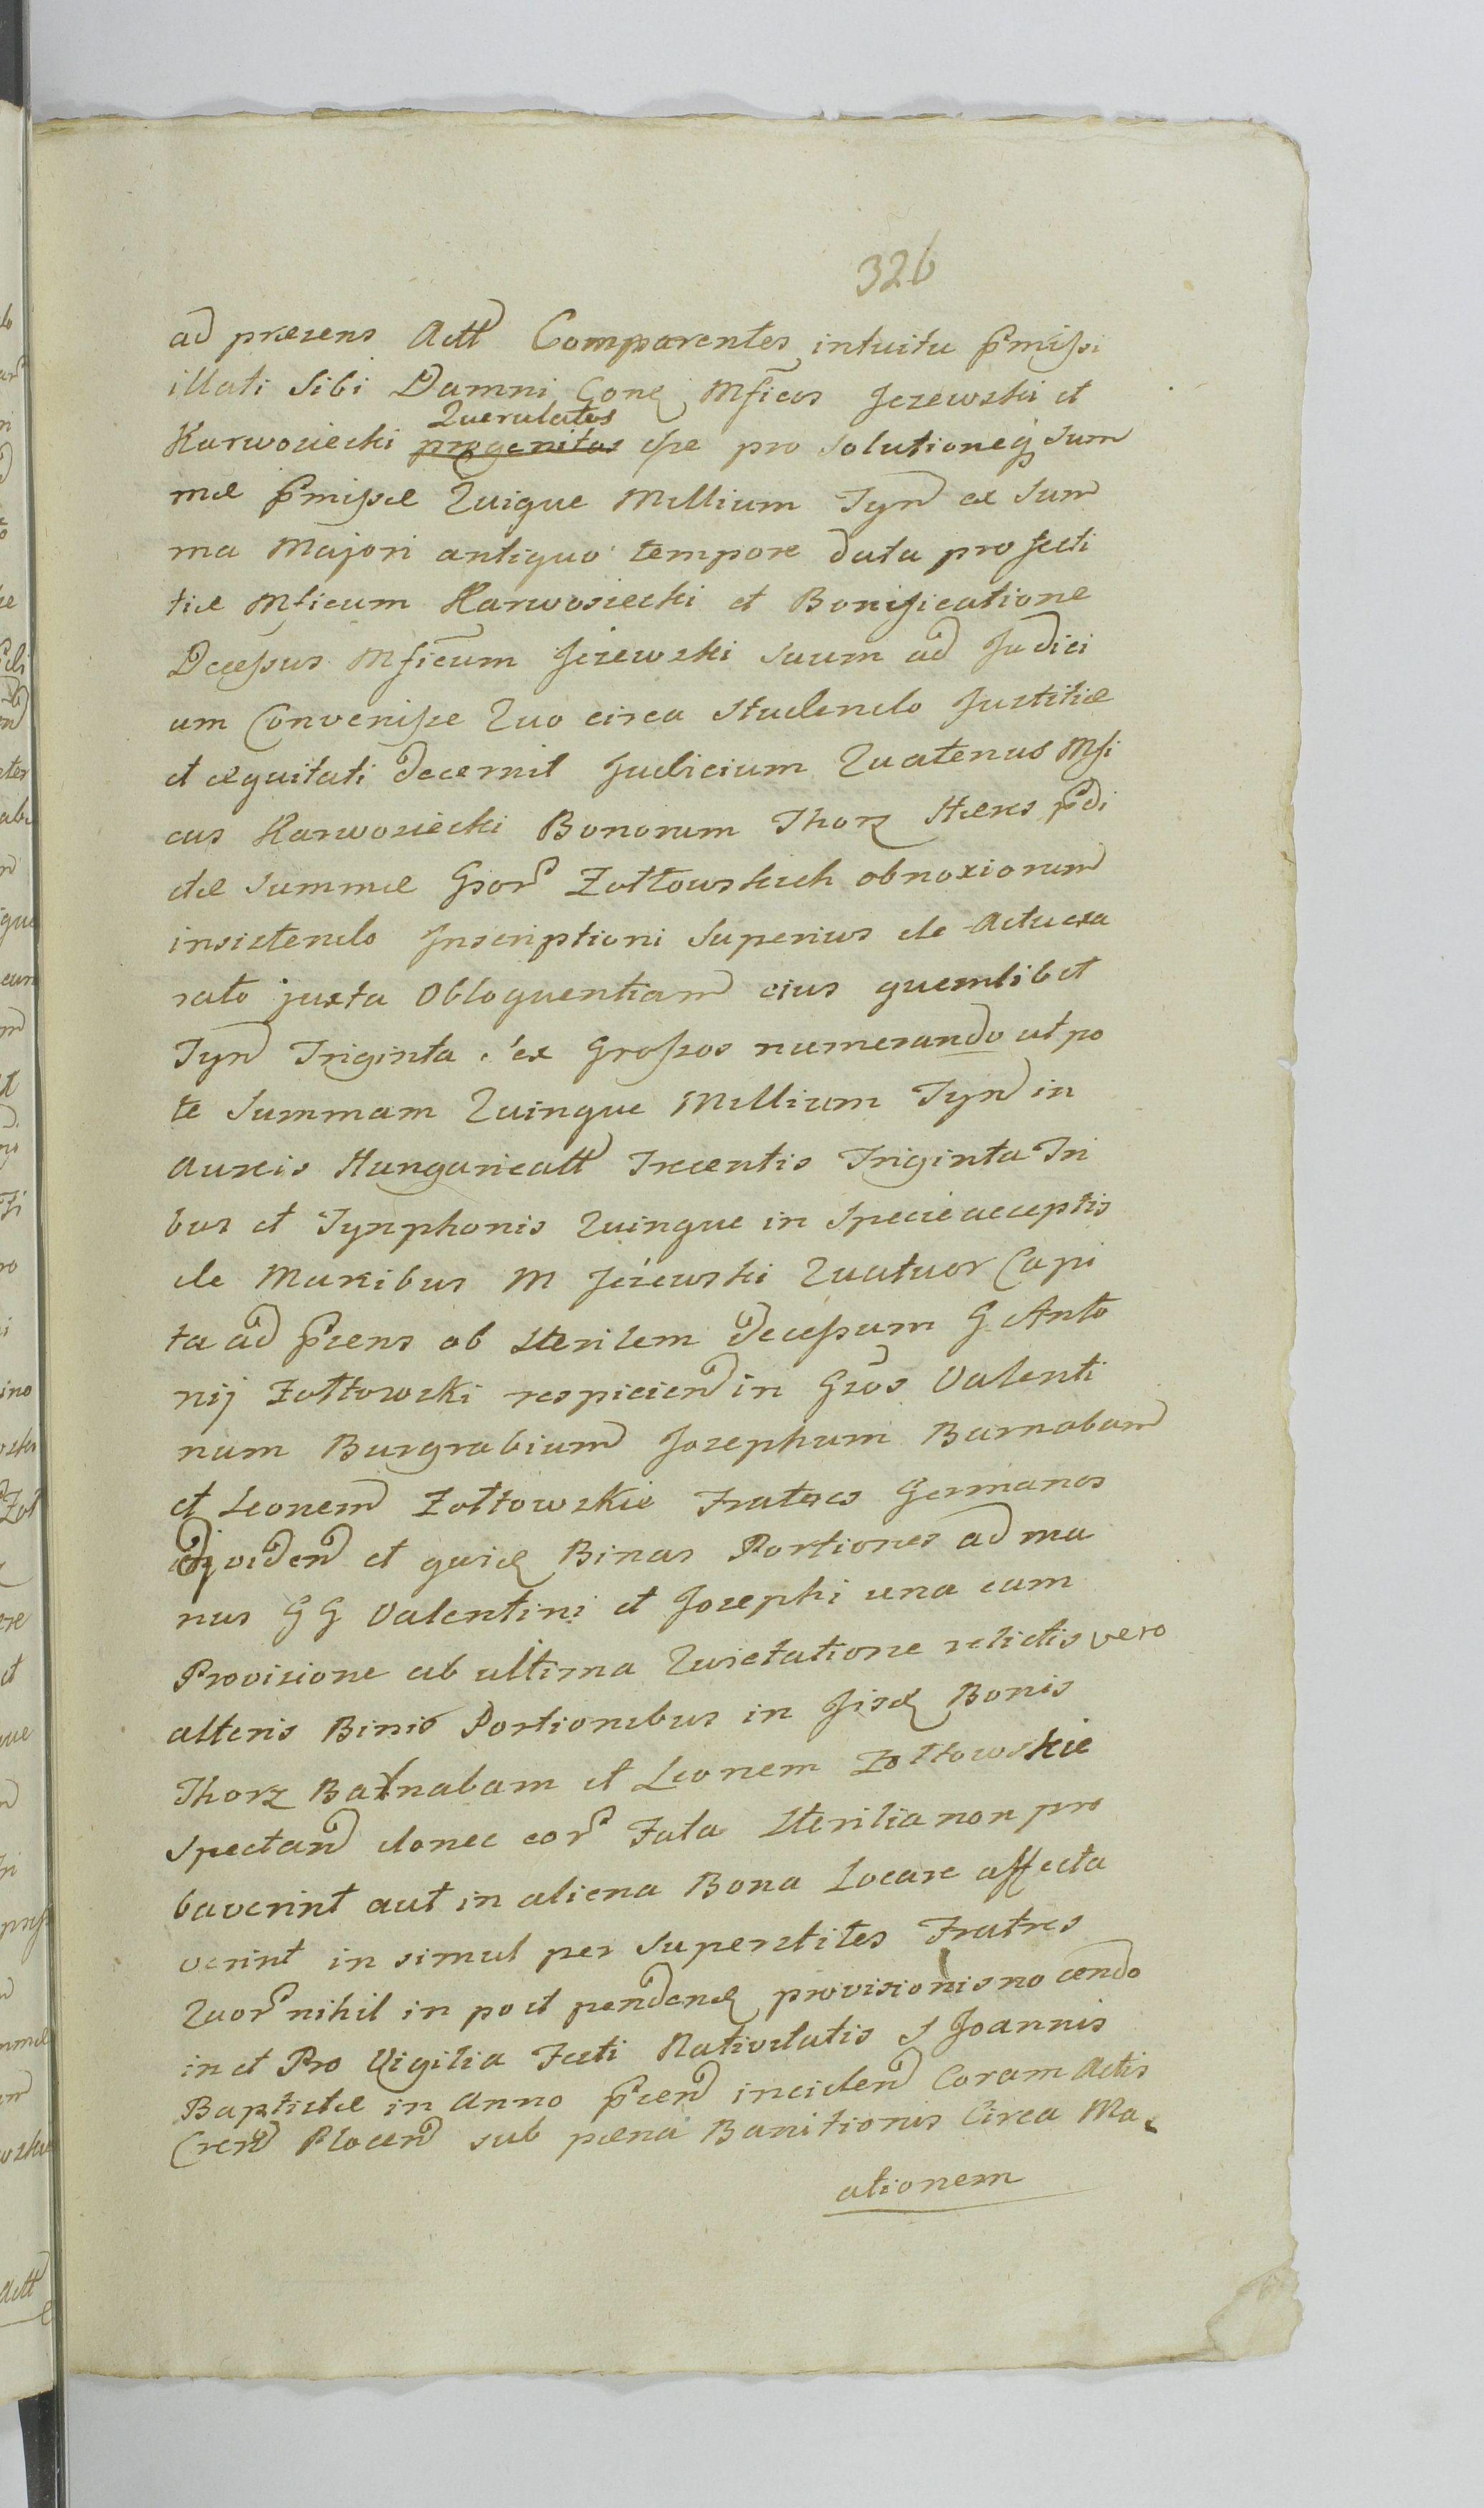 326
ad prezens Actt Comparentes intuitu p̃mißi
illati sibi Damni Conq Mficos Jezewski et
Querulatos
Karwosiecki progenitos eße pro solutioneq Sum
mæ p̃mißæ Quique Millium Tyn ex Sum
ma Majori antiquo tempore data pro secti
tiæ Mficum Karwosiecki et Bonificatione
Deceßus Mficum Jezewski suum ad Judici
um Conveniße Quo circa studendo Justitiæ
et æquitati decernit Judicium Quatenus Mfi
cus Karwosiecki Bonorum Thorz Hæres p̃di
ctæ Summæ Gsor Zołtowskich obnoxiorum
insistendo Inscriptioni Superius de Actu exa
rato juxta Obloquentiam eius quemlibet
Tyn Triginta ex Großos numerando utpo
te Summam Quinque Millium Tyn in
Aureis Hungaricatt Trecentis Triginta Tri
bus et Tynphonis Quinque in Specie acceptis
de Manibus M Jeżewski Quatuor Capi
ta ad p̃zens ob sterilem deceßum G Anto
nij Zołtowski respicien in Gsos Valenti
num Burgrabium Josephum Barnabam
et Leonem Zołtowskie Fratres Germanos
dividen et quidq Binas Portiones ad ma
nus GG Valentini et Josephi una cum
Provisione ab ultima Quietatione relictis vero
alteris Binis Portionibus in Jisdq Bonis
Thorz Barnabam et Leonem Zołtowskie
Spectan donec eor Fata Sterilia non pro
baverint aut in aliena Bona Locare affecta
verint in simul per Superstites Fratres
Quor nihil in post pendenq provisionis nocendo
in et Pro Vigilia Festi Nativitatis S Joannis
Baptistæ in Anno p̃zen inciden Coram Actis
Cren Plocen sub pæna Banitionis Circa Ma
ationem